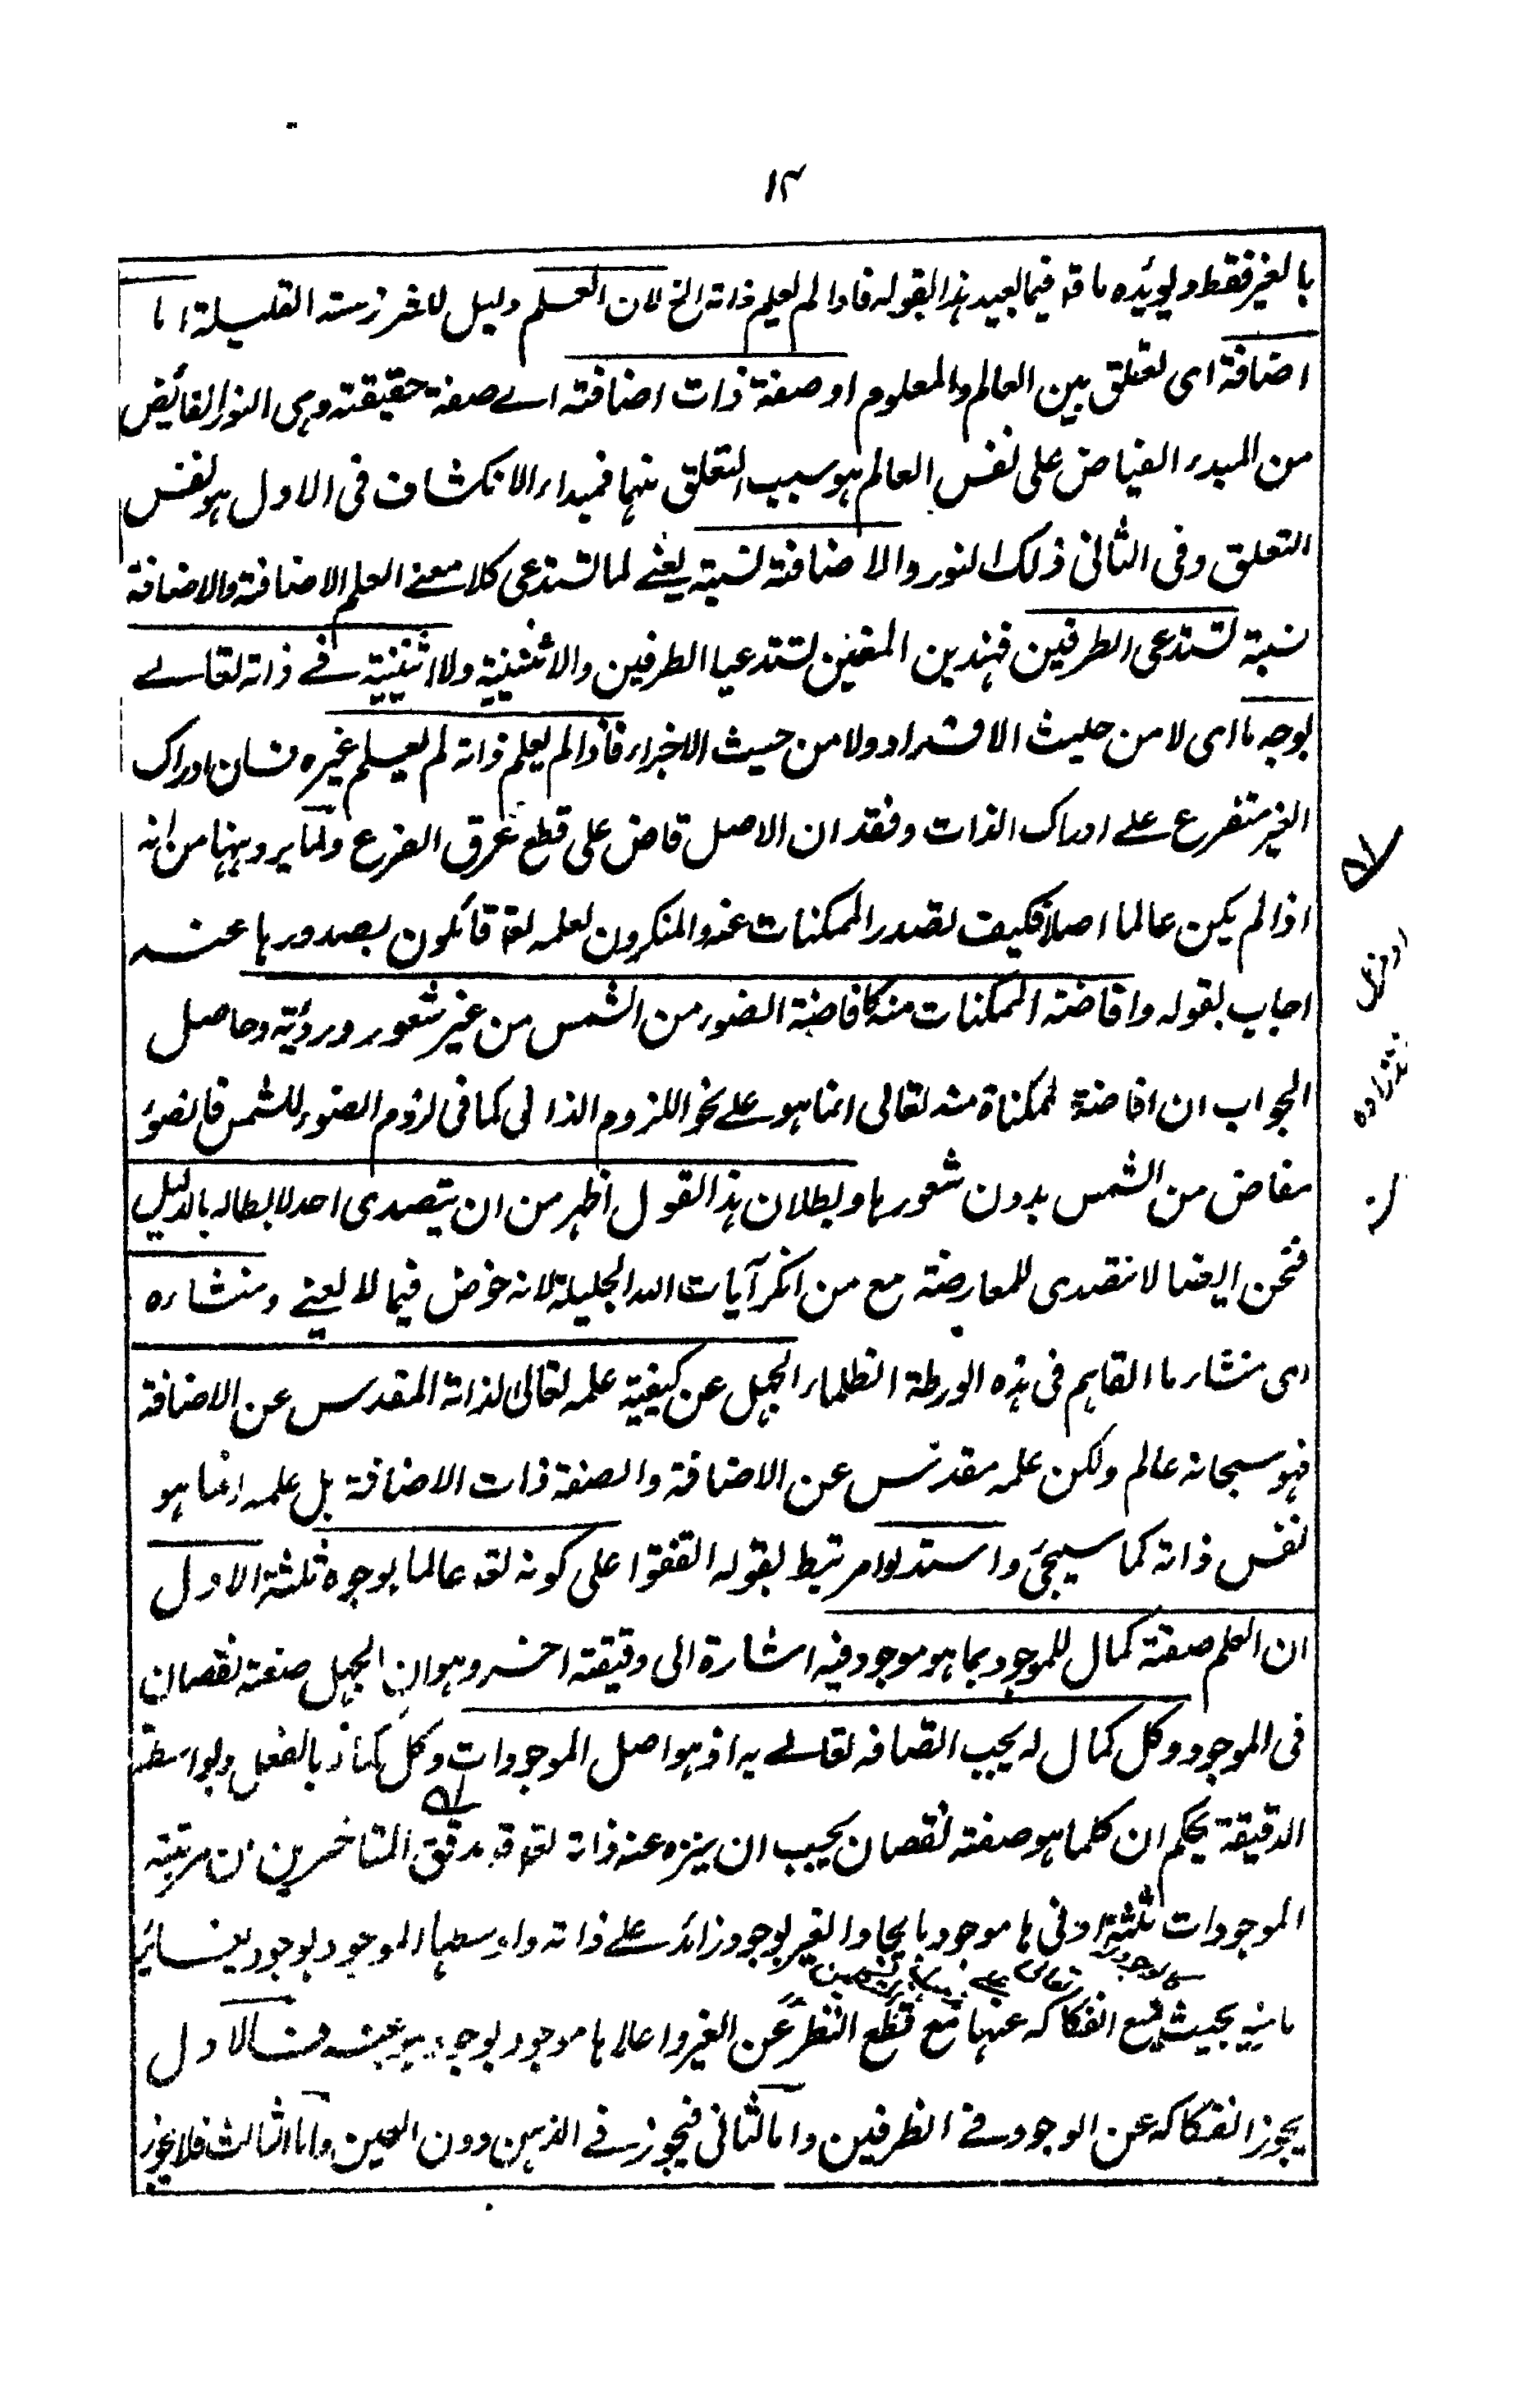 ١٢
بالغير فقط ويؤيده ما قه فيما بعيد هذا بقوله فاذا لم يعلم ذاته الخ لان العلم دليل للشرذمة القليلة اما
اضافة اى تعلق بين العالم والمعلوم او صفة ذات اضافة اے صفة حقيقته وهى النور الفائض
من المبدء الفياض على نفس العالم هو سبب التعلق بينهما فمبداء الانكشاف فى الاول هو نفس
التعلق وفى الثانى ذلك النور والاضافة نسبة يعنے لما تستدعى كلا معنے العلم الاضافة والاضافة
نسبة تستدعى الطرفين فهذين المعنين تستدعيا الطرفين والاثنينية ولا اثنينية فے ذاته تعالے
بوجه ما اى لا من حيث الافراد ولا من حيث الاجزاء فاذا لم يعلم ذاته لم يعلم غيره فان ادراك
الغير متفرع علے ادراك الذات وفقدان الاصل قاض على قطع عرق الفرع ولما يرد ههنا من انه
اذا لم يكن عالما اصلا فكيف تصدر الممكنات عنه والمنكرون لعلمه تعه قائلون بصدورها عنه
اجاب بقوله وافاضة الممكنات منه كافاضة الضوء من الشمس من غير شعور ورؤية وحاصل
الجواب ان افاضة لممكناة منه تعالى انما هو علے نحو اللزوم الذاتى كما فى لزوم الضوء للشمس فالضوء
مفاض من الشمس بدون شعورها وبطلان هذا القول اظهر من ان يتصدى احد لابطاله بالدليل
فنحن ايضا لا نتصدى للمعارضة مع من انكر آيات الله الجليلة لانه خوض فيما لا يعنے ومنشاءه
اى منشاء ما القاهم فى هذه الورطة الظلماء الجهل عن كيفية علمه تعالى لذاته المقدس عن الاضافة
فهو سبحانه عالم ولكن علمه مقدس عن الاضافة والصفة ذات الاضافة بل علمه انما هو
نفس ذاته كما سيجئ واستدلوا مرتبط بقوله اتفقوا على كونه تعه عالما بوجوه ثلثة الاول
ان العلم صفة كمال للموجود بما هو موجود فيه اشارة الى دقيقة اخر وهو ان الجهل صفة نقصان
فى الموجود وكل كمال له يجب اتصافه تعالے به اذ هو اصل الموجودات وكل كماله بالفعل وبواسطة
الدقيقة يحكم ان كلما هو صفة نقصان يجب ان ينزه عنه ذاته تعه قه مدقق المتاخرين ان مرتبة
الموجودات ثلثة ادنى ها موجود بايجاد الغير بوجود زائد علے ذاته واوسطها الموجود بوجود
بحيث يمتنع انفكاكه عنها مع قطع النظر عن الغير واعلاها موجود بوجود هو عينه فالاول
يجوز انفكاكه عن الوجود فے الظرفين واما الثانى فيجوز فے الذهن دون العين واما الثالث فلا يجوز